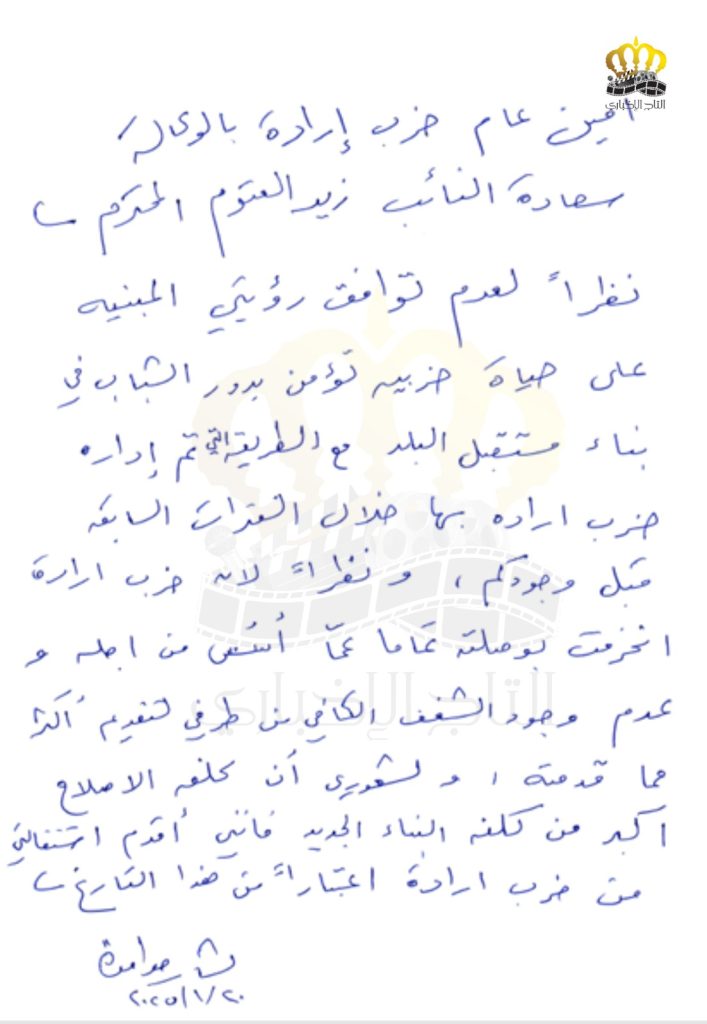 التاج الإخباري
امين عام حزب إرادة بالوكالة
سعادة النائب زيد العتوم المحترم
نظراً لعدم توافق رؤيتي المبنيه
على حياة حزبيه تؤمن بدور الشباب في
بناء مستقبل البلد مع الطريقه التي تم إداره
حزب اراده بها خلال الفترات السابقه
قبل وجودكم، ونظراً لان حزب ارادة
انحرفت بوصلته تماما عمّا أُسس من اجله و
عدم وجود الشغف الكافي من طرفي لتقديم أكثر
مما قدمته، ولشعوري أن كلفه الاصلاح
اكبر من كلفه البناء الجديد فانني أقدم استقالتي
من حزب ارادة اعتباراً من هذا التاريخ
التاج الإخباري
صوامدة
٢٠٢٥/١/٢٠